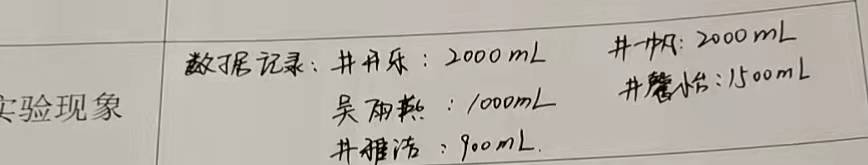 数据记录：井开乐：2000mL 井一帆：2000mL
实验现象 吴雨燕：1000mL 井馨怡：1500mL
井雅洁：900mL.